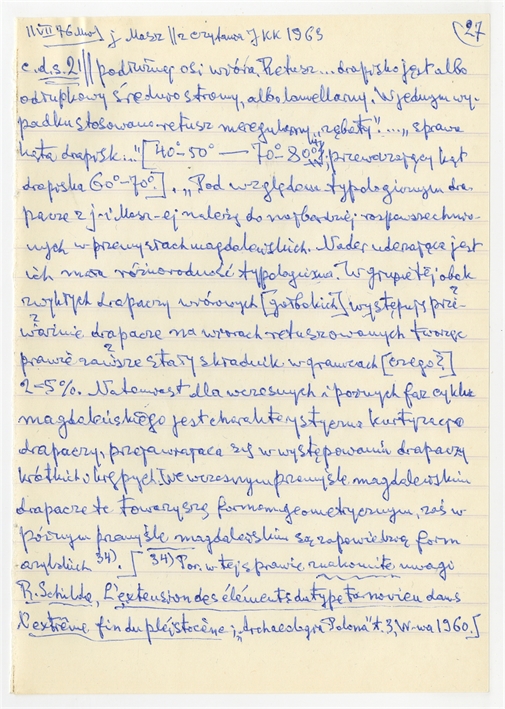 11 VII 76 j. Masz || z czytania JKK 1963 27
c.d.s. 21 || podłużnej osi wióra. Retusz... drapisko jest albo
odłupkowy średnio stromy, albo lamellarny. W jednym wy-
padku stosowano retusz nieregularny „zębaty”...., sprawa
kąta drapisk..." [40°-50° — 70°-80°, przeważający kąt
drapiska 60°-70°]. „Pod względem typologicznym dra-
pacze z j-i Masz-ej należą do najbardziej rozpowszechnio-
nych w przemysłach magdaleńskich. Nader uderzająca jest
ich mała różnorodność typologiczna. W grupie tej obok
zwykłych drapaczy wiórowych [ ] występują prze-
ważnie drapacze na wiórach retuszowanych tworząc
prawie zawsze stały składnik w granicach [czego?]
2-5%. Natomiast dla wczesnych i późnych faz cyklu
magdaleńskiego jest charakterystyczna
drapaczy, przejawiająca się w występowaniu drapaczy
krótkich i krępych. We wczesnym przemyśle magdaleńskim
drapacze te towarzyszą formom geometrycznym, zaś w
późnym przemyśle magdaleńskim są zapowiedzią form
azylskich 34). [34) Por. w tej sprawie znakomite uwagi
R. Schilda, L'extension des éléments du type tanovien dans
l'extrême fin du pléjstocène; „Archaeologia Polona” t. 3, W-wa 1960.]